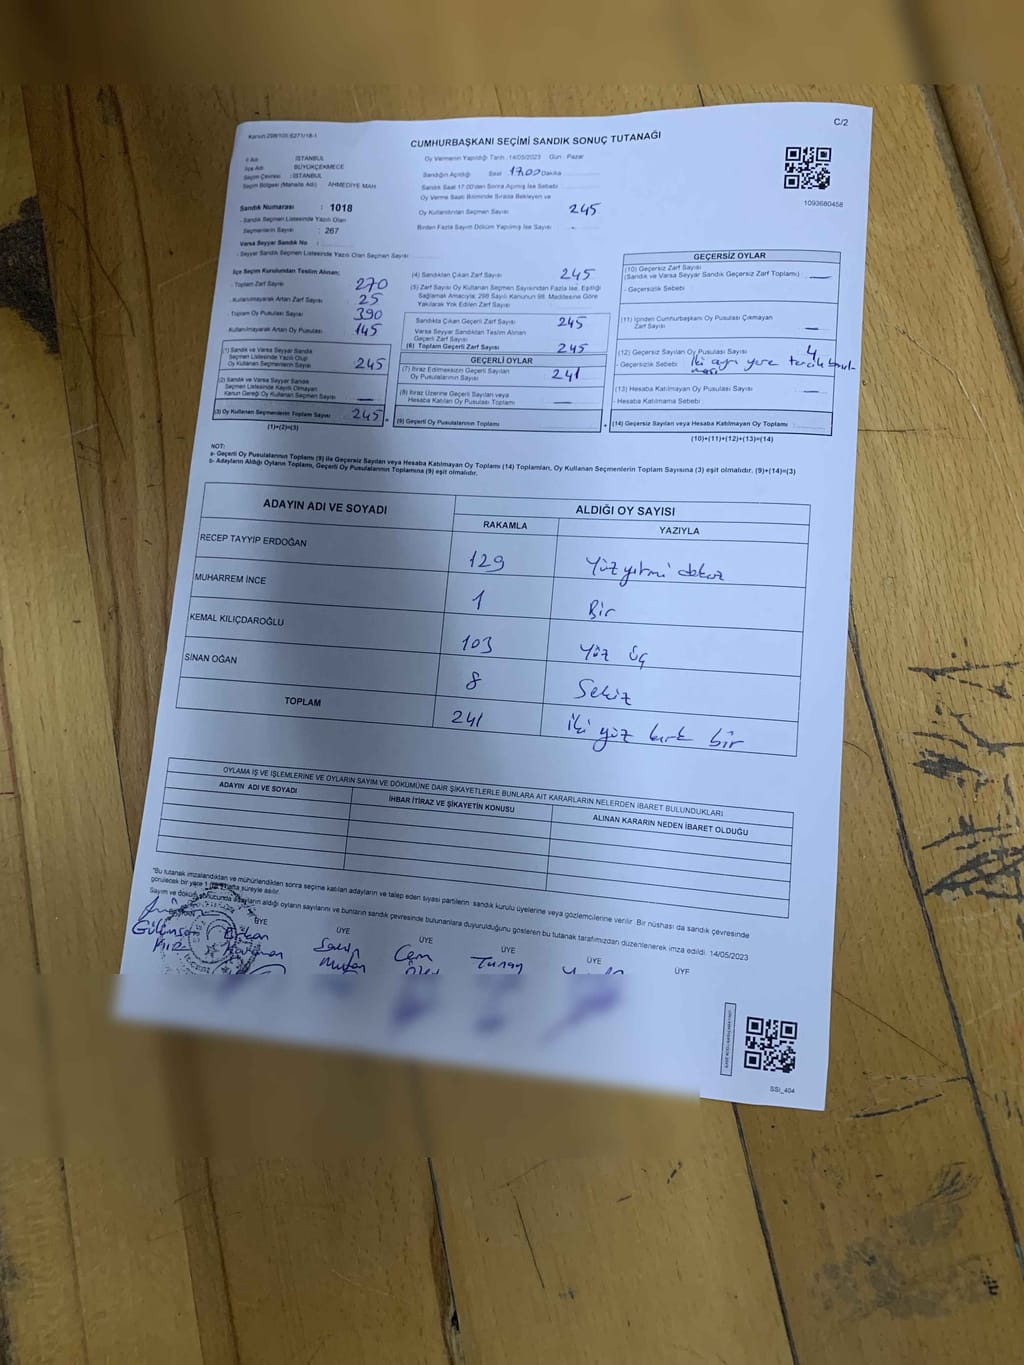 Kanun:298/105;6271/18-1
C/2
CUMHURBAŞKANI SEÇİMİ SANDIK SONUÇ TUTANAĞI
İl Adı : İSTANBUL
İlçe Adı : BÜYÜKÇEKMECE
Seçim Çevresi : İSTANBUL
Seçim Bölgesi (Mahalle Adı) : AHMEDİYE MAH.
Sandık Numarası : 1018
- Sandık Seçmen Listesinde Yazılı Olan
Seçmenlerin Sayısı : 267
Varsa Seyyar Sandık No :
- Seyyar Sandık Seçmen Listesinde Yazılı Olan Seçmen Sayısı
Oy Vermenin Yapıldığı Tarih : 14/05/2023 Gün : Pazar
Sandığın Açıldığı Saat 17.00 Dakika
Sandık Saat 17.00'den Sonra Açılmış İse Sebebi
Oy Verme Saati Bitiminde Sırada Bekleyen ve
Oy Kullandırılan Seçmen Sayısı 245
Birden Fazla Sayım Döküm Yapılmış İse Sayısı -
1093680458
İlçe Seçim Kurulundan Teslim Alınan;
- Toplam Zarf Sayısı 270
- Kullanılmayarak Artan Zarf Sayısı 25
- Toplam Oy Pusulası Sayısı 390
Kullanılmayarak Artan Oy Pusulası 145
(1) Sandık ve Varsa Seyyar Sandık
Seçmen Listesinde Yazılı Olup
Oy Kullanan Seçmenlerin Sayısı 245
(2) Sandık ve Varsa Seyyar Sandık
Seçmen Listesinde Kayıtlı Olmayan
Kanun Gereği Oy Kullanan Seçmen Sayısı —
(3) Oy Kullanan Seçmenlerin Toplam Sayısı 245
(1)+(2)=(3)
(4) Sandıktan Çıkan Zarf Sayısı 245
(5) Zarf Sayısı Oy Kullanan Seçmen Sayısından Fazla İse, Eşitliği
Sağlamak Amacıyla, 298 Sayılı Kanunun 98. Maddesine Göre
Yakılarak Yok Edilen Zarf Sayısı
Sandıkta Çıkan Geçerli Zarf Sayısı 245
Varsa Seyyar Sandıktan Teslim Alınan
Geçerli Zarf Sayısı
(6) Toplam Geçerli Zarf Sayısı 245
GEÇERLİ OYLAR
(7) İtiraz Edilmeksizin Geçerli Sayılan
Oy Pusulalarının Sayısı 241
(8) İtiraz Üzerine Geçerli Sayılan veya
Hesaba Katılan Oy Pusulası Toplamı —
(9) Geçerli Oy Pusulalarının Toplamı
GEÇERSİZ OYLAR
(10) Geçersiz Zarf Sayısı
(Sandık ve Varsa Seyyar Sandık Geçersiz Zarf Toplamı) —
- Geçersizlik Sebebi :
(11) İçinden Cumhurbaşkanı Oy Pusulası Çıkmayan
Zarf Sayısı —
(12) Geçersiz Sayılan Oy Pusulası Sayısı 4
- Geçersizlik Sebebi : İki ayrı yere tercih
(13) Hesaba Katılmayan Oy Pusulası Sayısı —
- Hesaba Katılmama Sebebi :
(14) Geçersiz Sayılan veya Hesaba Katılmayan Oy Toplamı
(10)+(11)+(12)+(13)=(14)
NOT:
a- Geçerli Oy Pusulalarının Toplamı (9) ile Geçersiz Sayılan veya Hesaba Katılmayan Oy Toplamı (14) Toplamları, Oy Kullanan Seçmenlerin Toplam Sayısına (3) eşit olmalıdır. (9)+(14)=(3)
b- Adayların Aldığı Oyların Toplamı, Geçerli Oy Pusulalarının Toplamına (9) eşit olmalıdır.
ADAYIN ADI VE SOYADI ALDIĞI OY SAYISI
RAKAMLA YAZIYLA
RECEP TAYYİP ERDOĞAN 129 Yüz yirmi dokuz
MUHARREM İNCE 1 Bir
KEMAL KILIÇDAROĞLU 103 Yüz üç
SİNAN OĞAN 8 Sekiz
TOPLAM 241 İki yüz kırk bir
OYLAMA İŞ VE İŞLEMLERİNE VE OYLARIN SAYIM VE DÖKÜMÜNE DAİR ŞİKAYETLERLE BUNLARA AİT KARARLARIN NELERDEN İBARET BULUNDUKLARI
ADAYIN ADI VE SOYADI İHBAR İTİRAZ VE ŞİKAYETİN KONUSU ALINAN KARARIN NEDEN İBARET OLDUĞU
"Bu tutanak imzalandıktan ve mühürlendikten sonra seçime katılan adayların ve talep eden siyasi partilerin sandık kurulu üyelerine veya gözlemcilerine verilir. Bir nüshası da sandık çevresinde
görülecek bir yere 1 hafta süreyle asılır.
Sayım ve döküm sonucunda adayların aldığı oyların sayılarını ve bunların sandık çevresinde bulunanlara duyurulduğunu gösteren bu tutanak tarafımızdan düzenlenerek imza edildi. 14/05/2023
ÜYE ÜYE ÜYE ÜYE ÜYE ÜYE
Cem Tunay
SSİ_404